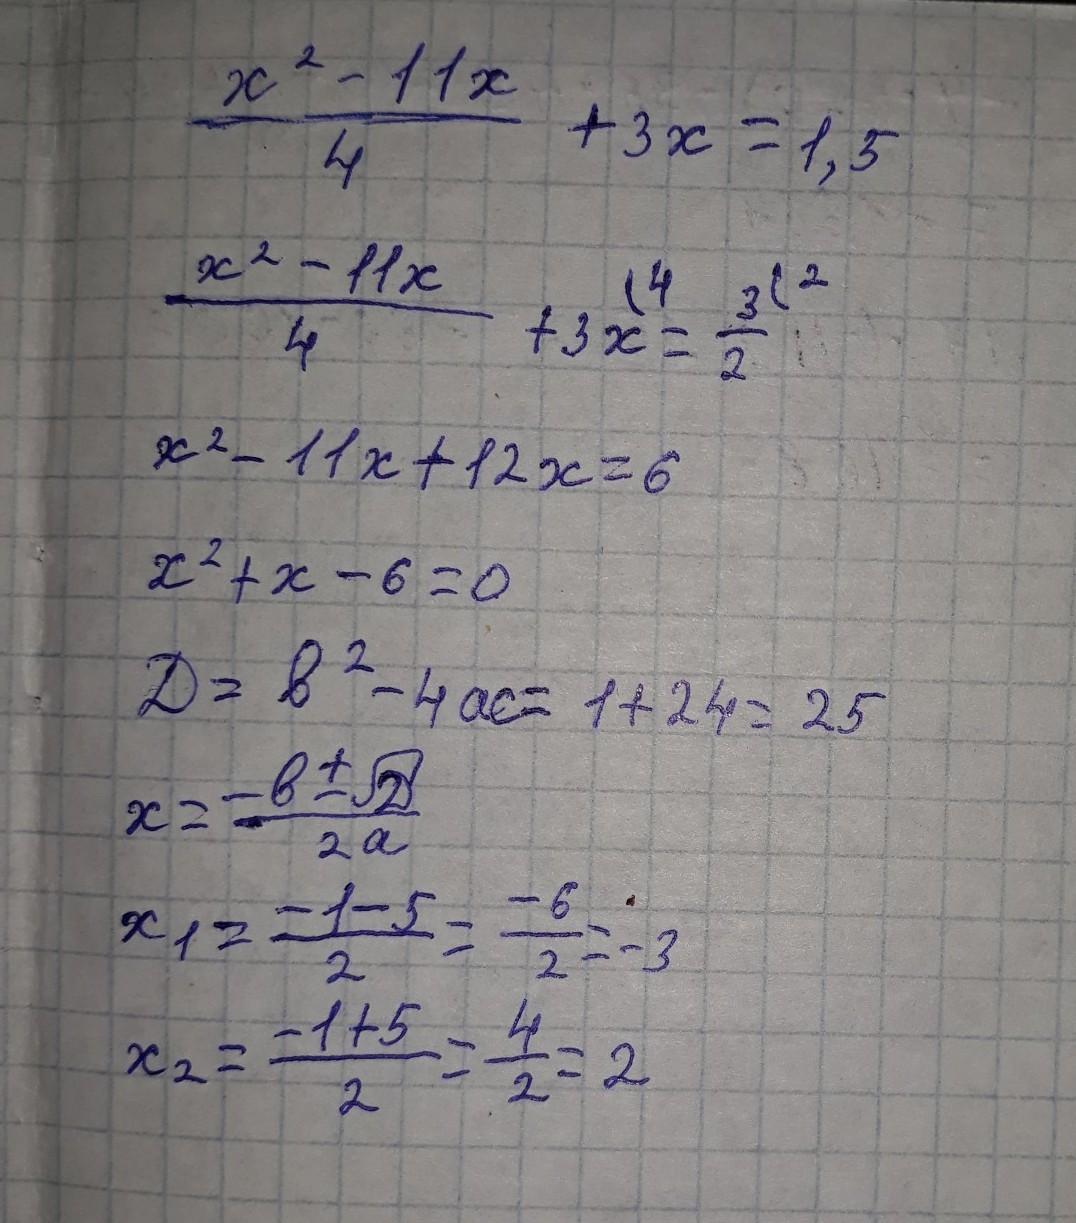 x² - 11x / 4 + 3x = 1,5
x² - 11x / 4 + 3x (4 = 3 (2 / 2
x² - 11x + 12x = 6
x² + x - 6 = 0
D = b² - 4ac = 1 + 24 = 25
x = -b ± √D / 2a
x₁ = -1 - 5 / 2 = -6 / 2 = -3
x₂ = -1 + 5 / 2 = 4 / 2 = 2